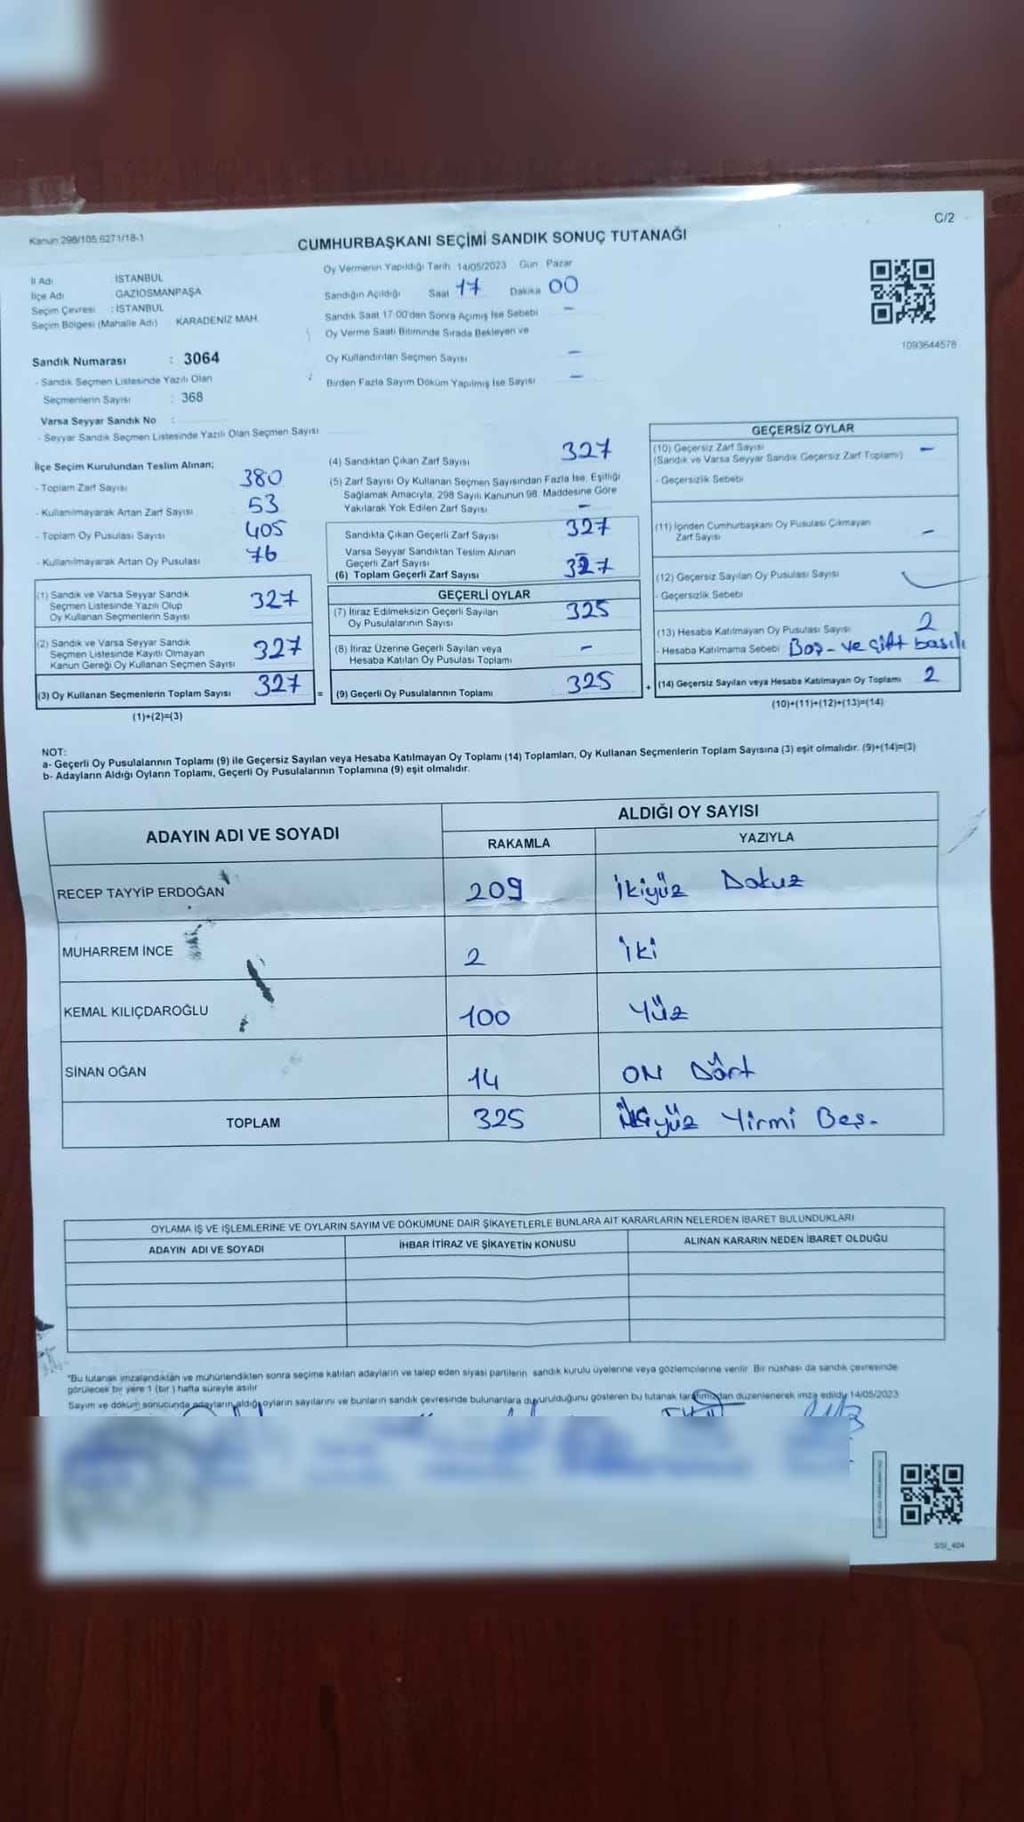 C/2
Kanun 298/105 6271/18-1
CUMHURBAŞKANI SEÇİMİ SANDIK SONUÇ TUTANAĞI
İl Adı : İSTANBUL
İlçe Adı : GAZİOSMANPAŞA
Seçim Çevresi : İSTANBUL
Seçim Bölgesi (Mahalle Adı) KARADENİZ MAH.
Sandık Numarası : 3064
- Sandık Seçmen Listesinde Yazılı Olan
Seçmenlerin Sayısı : 368
Varsa Seyyar Sandık No :
- Seyyar Sandık Seçmen Listesinde Yazılı Olan Seçmen Sayısı
Oy Vermenin Yapıldığı Tarih 14/05/2023 Gün Pazar
Sandığın Açıldığı Saat 17 Dakika 00
Sandık Saat 17:00'dan Sonra Açımış İse Sebebi –
Oy Verme Saati Bitiminde Sırada Bekleyen ve
Oy Kullandırılan Seçmen Sayısı –
Birden Fazla Sayım Döküm Yapılmış İse Sayısı –
1093644578
İlçe Seçim Kurulundan Teslim Alınan;
- Toplam Zarf Sayısı 380
- Kullanılmayarak Artan Zarf Sayısı 53
- Toplam Oy Pusulası Sayısı 405
- Kullanılmayarak Artan Oy Pusulası 76
(1) Sandık ve Varsa Seyyar Sandık
Seçmen Listesinde Yazılı Olup
Oy Kullanan Seçmenlerin Sayısı 327
(2) Sandık ve Varsa Seyyar Sandık
Seçmen Listesinde Kayıtlı Olmayan
Kanun Gereği Oy Kullanan Seçmen Sayısı 327
(3) Oy Kullanan Seçmenlerin Toplam Sayısı 327
(1)+(2)=(3)
(4) Sandıktan Çıkan Zarf Sayısı 327
(5) Zarf Sayısı Oy Kullanan Seçmen Sayısından Fazla İse, Eşitliği
Sağlamak Amacıyla, 298 Sayılı Kanunun 98. Maddesine Göre
Yakılarak Yok Edilen Zarf Sayısı –
Sandıkta Çıkan Geçerli Zarf Sayısı 327
Varsa Seyyar Sandıktan Teslim Alınan
Geçerli Zarf Sayısı –
(6) Toplam Geçerli Zarf Sayısı 327
GEÇERLİ OYLAR
(7) İtiraz Edilmeksizin Geçerli Sayılan
Oy Pusulalarının Sayısı 325
(8) İtiraz Üzerine Geçerli Sayılan veya
Hesaba Katılan Oy Pusulası Toplamı –
= (9) Geçerli Oy Pusulalarının Toplamı 325
GEÇERSİZ OYLAR
(10) Geçersiz Zarf Sayısı –
(Sandık ve Varsa Seyyar Sandık Geçersiz Zarf Toplamı)
- Geçersizlik Sebebi
(11) İçinden Cumhurbaşkanı Oy Pusulası Çıkmayan
Zarf Sayısı –
(12) Geçersiz Sayılan Oy Pusulası Sayısı
- Geçersizlik Sebebi
(13) Hesaba Katılmayan Oy Pusulası Sayısı 2
- Hesaba Katılmama Sebebi Boş - ve çift basılı
+ (14) Geçersiz Sayılan veya Hesaba Katılmayan Oy Toplamı 2
(10)+(11)+(12)+(13)=(14)
NOT:
a- Geçerli Oy Pusulalarının Toplamı (9) ile Geçersiz Sayılan veya Hesaba Katılmayan Oy Toplamı (14) Toplamları, Oy Kullanan Seçmenlerin Toplam Sayısına (3) eşit olmalıdır. (9)+(14)=(3)
b- Adayların Aldığı Oyların Toplamı, Geçerli Oy Pusulalarının Toplamına (9) eşit olmalıdır.
ADAYIN ADI VE SOYADI ALDIĞI OY SAYISI
RAKAMLA YAZIYLA
RECEP TAYYİP ERDOĞAN 209 İkiyüz Dokuz
MUHARREM İNCE 2 İki
KEMAL KILIÇDAROĞLU 100 Yüz
SİNAN OĞAN 14 ON Dört
TOPLAM 325 İkiyüz Yirmi Beş.
OYLAMA İŞ VE İŞLEMLERİNE VE OYLARIN SAYIM VE DÖKÜMÜNE DAİR ŞİKAYETLERLE BUNLARA AİT KARARLARIN NELERDEN İBARET BULUNDUKLARI
ADAYIN ADI VE SOYADI İHBAR İTİRAZ VE ŞİKAYETİN KONUSU ALINAN KARARIN NEDEN İBARET OLDUĞU
"Bu tutanak imzalandıktan ve mühürlendikten sonra seçime katılan adayların ve talep eden siyasi partilerin sandık kurulu üyelerine veya gözlemcilerine verilir. Bir nüshası da sandık çevresinde
görülecek bir yere 1 (bir) hafta süreyle asılır
Sayım ve döküm sonucunda adayların aldığı oyların sayılarını ve bunların sandık çevresinde bulunanlara duyurulduğunu gösteren bu tutanak tarafımızdan düzenlenerek imza edildi. 14/05/2023
SSI_404